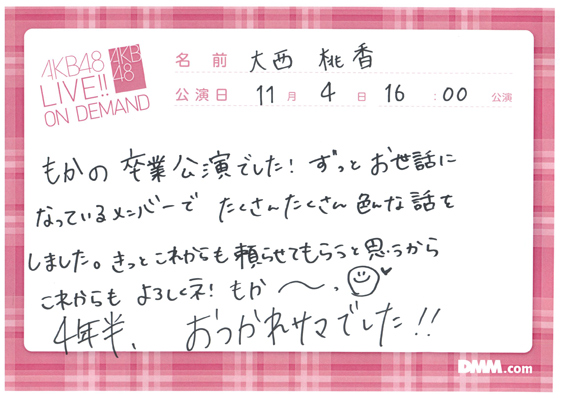 AKB48
LIVE!!
ON DEMAND
AKB
48
名前 大西 桃香
公演日 11月 4日 16:00 公演
もかの 卒業公演でした! ずっと お世話に
なっているメンバーで たくさんたくさん 色んな 話を
しました。きっと これからも 頼らせてもらうと思うから
これからも よろしくネ! もか 〜っ
4年半、 おつかれサマでした!!
DMM.com